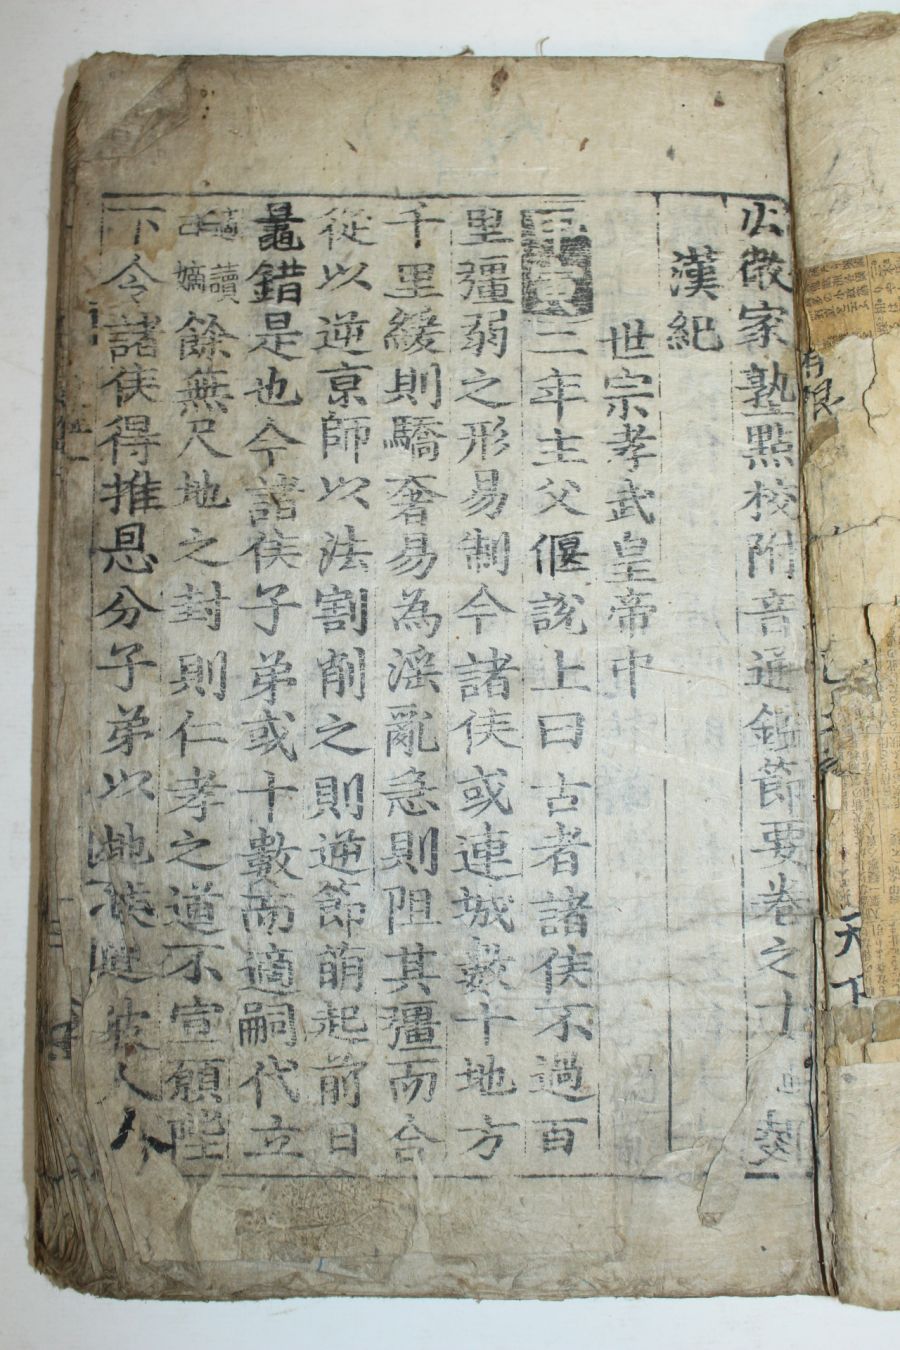 公徽家塾點校附音通鑑節要卷之十
漢紀
世宗孝武皇帝中
二年主父偃說上曰古者諸侯不過百
里疆弱之形易制今諸侯或連城數十地方
千里緩則驕奢易為淫亂急則阻其疆而合
從以逆京師以法割削之則逆節萌起前日
鼂錯是也今諸侯子弟或十數而適嗣代立
適讀曰嫡餘無尺地之封則仁孝之道不宣願陛
下令諸侯得推恩分子弟以地侯人人
有限
天下